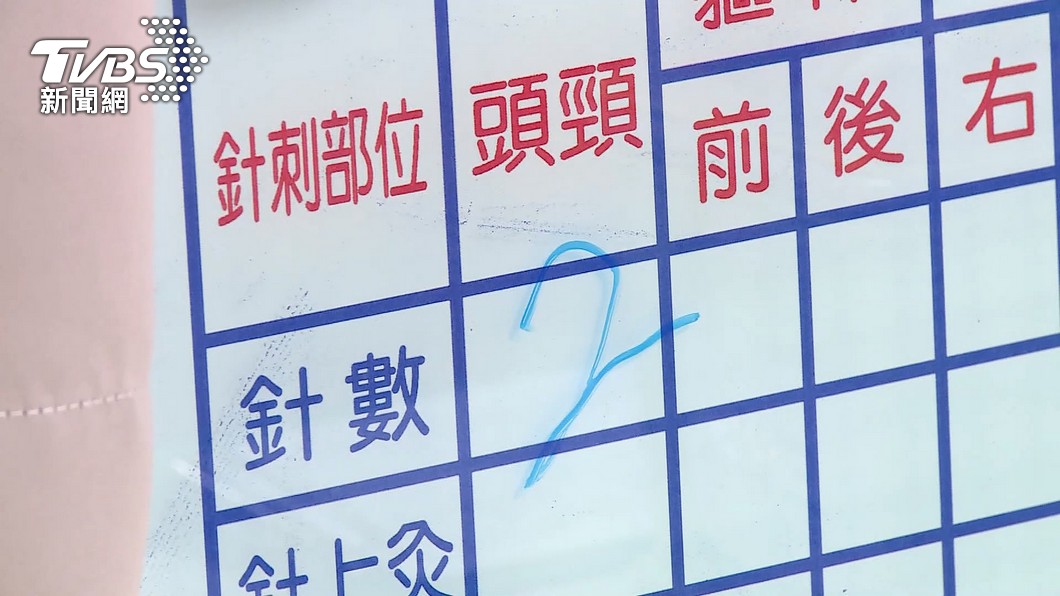 TVBS
新聞網
針刺部位
頭頸
前
後
右
針數
2
針上灸